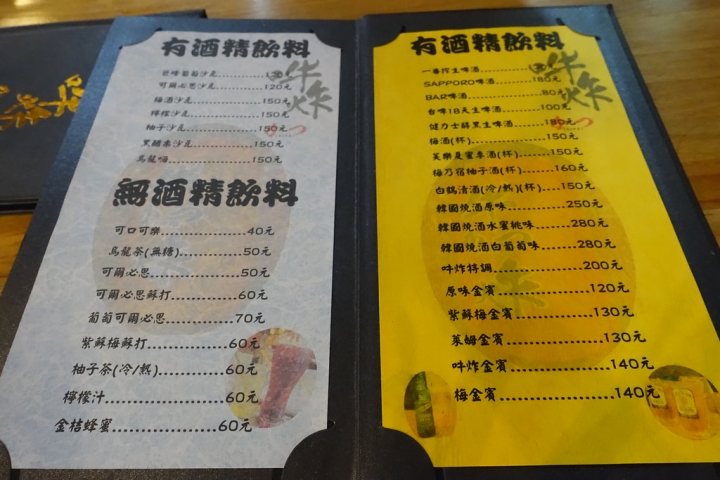 有酒精飲料
可爾必思沙瓦............120元
梅酒沙瓦............150元
檸檬沙瓦............150元
柚子沙瓦............150元
黑醋栗沙瓦............150元
烏龍嗨............150元
無酒精飲料
可口可樂............40元
烏龍茶(無糖)............50元
可爾必思............50元
可爾必思蘇打............60元
葡萄可爾必思............70元
紫蘇梅蘇打............60元
柚子茶(冷/熱)............60元
檸檬汁............60元
金桔蜂蜜............60元
有酒精飲料
一番搾生啤酒
SAPPORO啤酒............180元
BAR啤酒............80元
台啤18天生啤酒............100元
健力士醇黑生啤酒............180元
梅酒(杯)............150元
芙樂夏蜜香酒(杯)............150元
梅乃宿柚子酒(杯)............160元
白鶴清酒(冷/熱)(杯)....150元
韓國燒酒原味............250元
韓國燒酒水蜜桃味............280元
韓國燒酒白葡萄味............280元
吽炸特調............200元
原味金賓............120元
紫蘇梅金賓............130元
萊姆金賓............130元
吽炸金賓............140元
梅金賓............140元